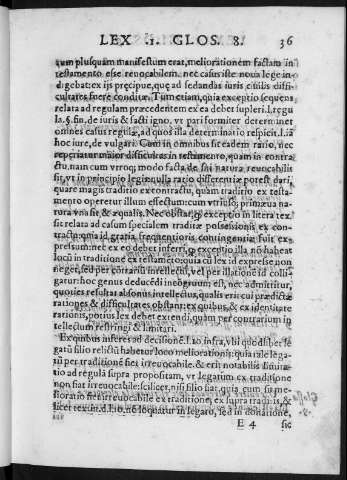 LEX .1. GLOS. 8. 36
tum plusquàm manifestum erat, meliorationem factam in
testamento esse revocabilem. nec casus iste noua lege in-
digebat: ex ijs præcipue, quæ ad sedandas iuris ciuilis diffi-
cultates fuere conditæ. Tum etiam, quia exceptio sequens
relata ad regulam præcedentem ex ea debet supleri. l. regu
la. §. fin. de iuris & facti igno. vt pari formiter determinet
omnes casus regulæ, ad quos illa determinatio respicit. l. iā
hoc iure, de vulgari. Cum in omnibus sit eadem ratio, nec
reperiatur maior difficultas in testamento, quam in contra
ctu. nam cum vtroq; modo facta de sui natura reuocabilis
sit, vt in principio legis: nulla ratio differentiæ potest dari,
quare magis traditio ex contractu, quàm traditio ex testa-
mento operetur illum effectum: cum vtriusq; primæua na
tura vna sit, & æqualis. Nec obstat, q exceptio in litera tex.
sit relata ad casum specialem traditæ possessionis ex con-
tractu: quia id gratia frequentioris contingentiæ fuit ex-
pressum: nec ex eo debet inferri, q exceptio illa nō habeat
locū in traditione ex testamēto: quia cū lex id expresse non
neget, sed per contrariū intellectū, vel per illatione id colli-
gatur: hoc genus deducēdi
quoties resultat absonus intellectus, qualis erit cui prædictæ
rationes & difficultates obstant: ex quibus, & ex identitate
rationis, potius lex debet extendi, quàm per contrarium in
tellectum restringi & limitari.
Ex quibus inferes ad decisionē. l. 20. infra, vbi quod per le
gatū filio relictū habetur loco meliorationis: quia tale lega-
tū per traditionē fiet irreuocabile. & erit notabilis limita-
tio ad regulā supra propositam, vt legatum ex traditione
non fiat irreuocabile: scilicet, nisi filio fiat, quia cum sit me-
lioratio fiet irreuocabile ex traditione, ex supra traditis, &
licet tex. in. d. l. 10. nō loquatur in legato, sed in donatione,
E 4 sic